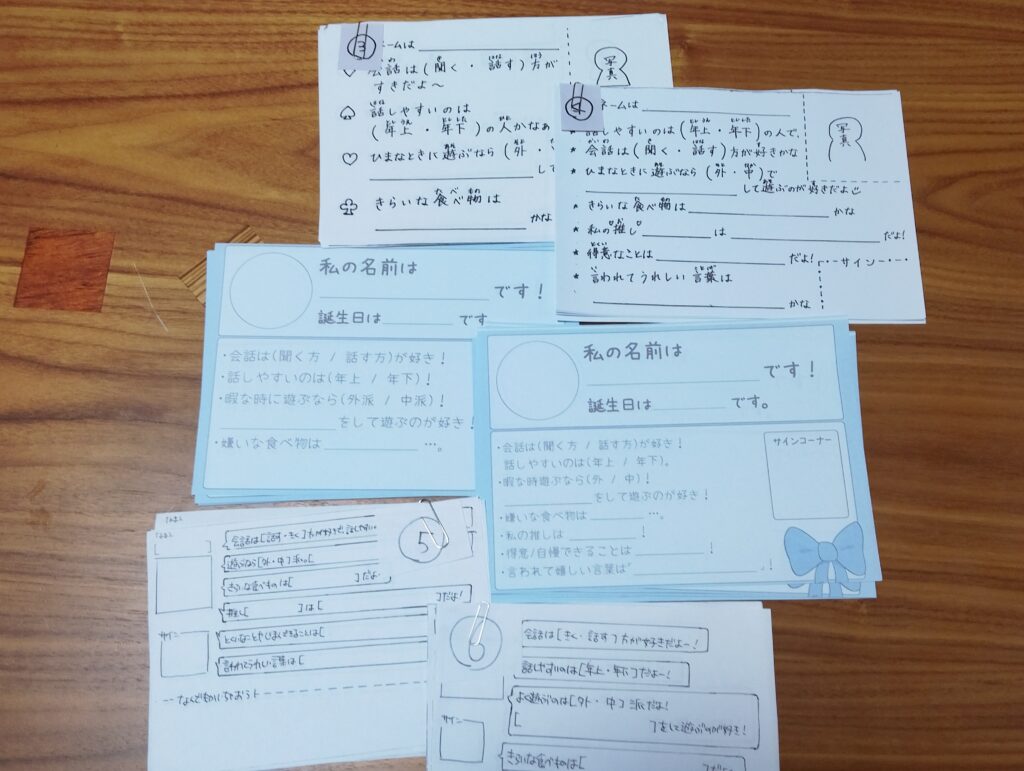 3
ネームは
会話は(聞く・話す)方が
すきだよ～
話しやすいのは
(年上・年下)の人かなぁ
ひまなときに遊ぶなら(外・
して
きらいな食べ物は
かな
写真
4
ネームは
話しやすいのは(年上・年下)の人で、
会話は(聞く・話す)方が好きかな
ひまなときに遊ぶなら(外・中)で
して遊ぶのが好きだよ
きらいな食べ物は かな
私の推し は だよ!
得意なことは だよ!
言われてうれしい言葉は
かな
写真
サイン
私の名前は
です!
誕生日は です
・会話は(聞く方 / 話す方)が好き!
・話しやすいのは(年上 / 年下)!
・暇な時に遊ぶなら(外派 / 中派)!
をして遊ぶのが好き!
・嫌いな食べ物は …。
私の名前は
です!
誕生日は です。
・会話は(聞く方 / 話す方)が好き!
話しやすいのは(年上 / 年下)。
・暇な時遊ぶなら(外 / 中)!
をして遊ぶのが好き!
・嫌いな食べ物は …。
・私の推しは !
・得意/自慢できることは !
・言われて嬉しい言葉は" "!
サインコーナー
5
会話は[話す・きく]方が好きで、話しやすい
遊ぶなら[外・中]派。
きらいな食べものは[ ]だよ
推し[ ]は[ ]だよ!
言われてうれしい言葉は[
サイン
なんでもかいちゃおう!
6
会話は[きく・話す]方が好きだよー!
話しやすいのは[年上・年下]だよー!
よく遊ぶのは[外・中]派だよ!
[ ]をして遊ぶのが好き!
きらいな食べものは[
サイン